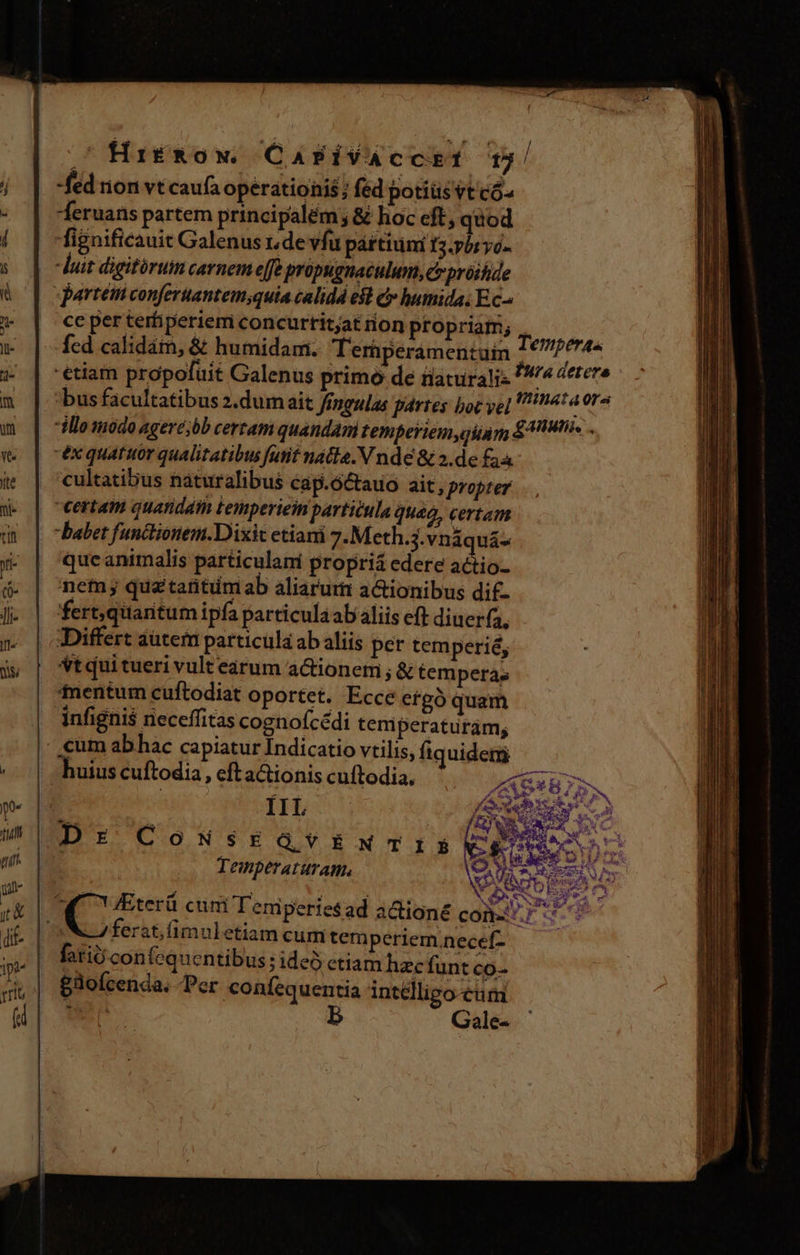 HIERON. CAPIVACCEI 15
sed non vt causa operationis; sed potius vt cō-
seruans partem principalem; & hoc est, quod
significauit Galenus 1. de vsu partium 13.
luit digitorum carnem esse propugnaculum, & proinde
partem conseruantem, quia calida est & humida. Ec-
ce per temperiem concurrit, at non propriam,
sed calidam, & humidam. Temperamentum
etiam proposuit Galenus primo de naturali-
bus facultatibus 2. dum ait singulas partes hoc vel
illo modo agere, ob certam quandam temperiem, quam
ex quatuor qualitatibus sunt nactæ. Vnde & 2. de fa-
cultatibus naturalibus cap. octauo ait, propter
certam quandam temperiem particula quæq; certam
habet functionem. Dixit etiam 7. Meth. 3. vnāquā-
que animalis particulam propriā edere actio-
nem; quæ tantum ab aliarum actionibus dif-
fert, quantum ipsa particula ab aliis est diuersa.
Differt autem particula ab aliis per temperiē,
Vt qui tueri vult earum actionem; & tempera-
mentum custodiat oportet. Ecce ergò quam
insignis necessitas cognoscēdi temperaturam,
cum ab hac capiatur Indicatio vtilis, siquidem
huius custodia, est actionis custodia.
Tempera-
tura deter-
minata or-
ganum.
III.
DE CONSEQVENTIBVS
Temperaturam.
CÆterū cum Temperies ad actionē con-
ferat, simul etiam cum temperiem necess-
sariò consequentibus; ideò etiam hæc sunt co-
gnoscenda. Per consequentia intelligo cum
B Gale-